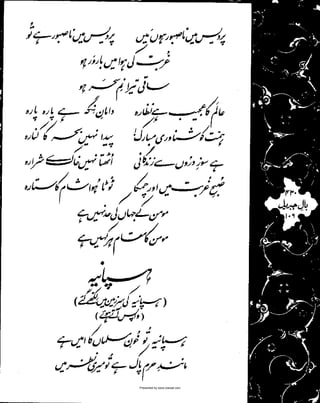 پردیس میں ناصبور ہوں میں پردیس میں ناصبور ہے تو
غربت کی ہوا میں بارور ہو
ساقی تیرا نمِ سحر ہو
عالم کا عجیب ہے نظارہ دامانِ نگہ ہے پارہ پارہ
ہمت کو شناوری مبارک! پیدا نہیں بحر کا کنارہ
ہے سوزِ دروں سے زندگانی اٹھتا نہیں خاک سے شرارہ
صبحِ غربت میں اور چمکا ٹوٹا ہوا شام کا ستارہ
مومن کے جہاں کی حد نہیں ہے
مومن کا مقام ہر کہیں ہے
ہسپانیہ
(ہسپانیہ کی سرزمین میں لکھے گئے)
(واپس آتے ہوئے)
ہسپانیہ تو خونِ مسلماں کا امیں ہے
مانندِ حرم پاک ہے تو میری نظر میں
۴۳۰
بالِ جبریل
۱۰۶
Presented by www.iqbalal.com